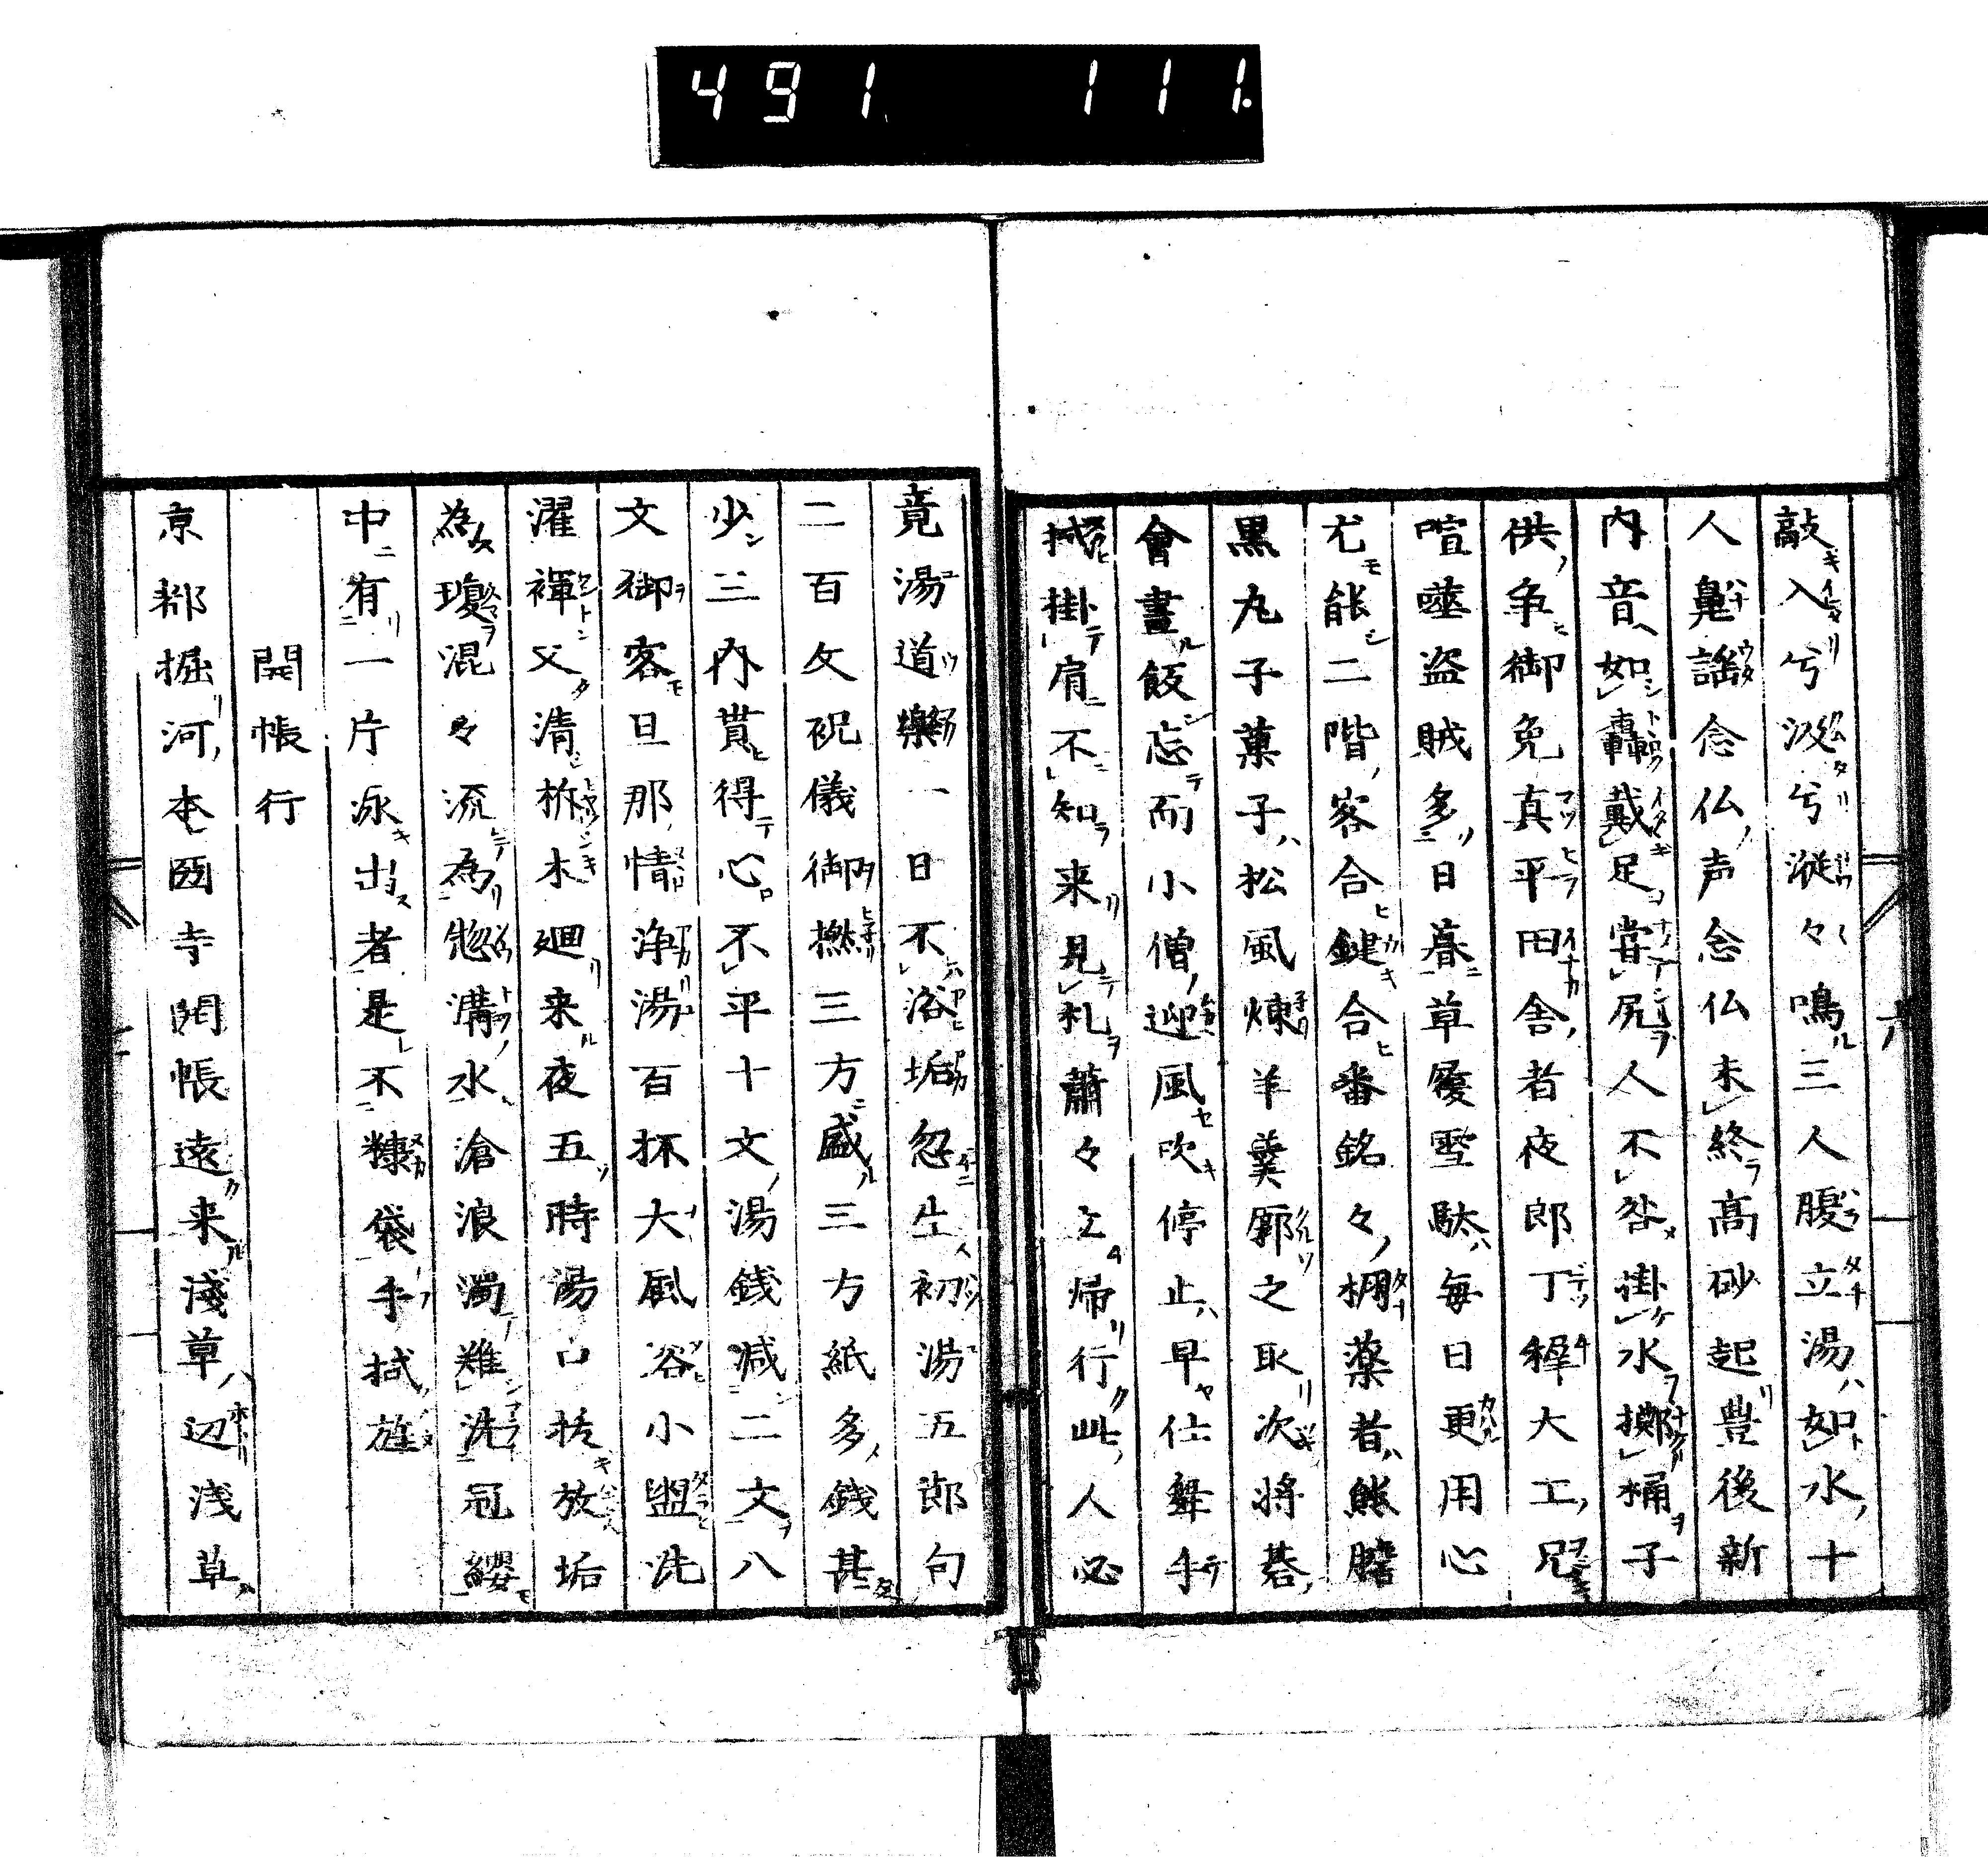 491 111.
敲入兮汲兮漎々鳴三人腹立湯如水十
人鼻謡念仏声念仏未終高砂起豊後新
内音如轟戴足甞尻人不咎掛水擲桶子
供争御免真平田舎者夜郎丁稺大工兄
喧嘩盗賊多日暮草履雪駄毎日更用心
尤能二階客合鍵合番銘々棚薬者熊膽
黒丸子菓子松風煉羊羹廓之取次将碁
會晝飯忘而小僧迎風吹停止早仕舞手
拭掛肩不知来見札蕭々之帰行此人必
竟湯道樂一日不浴垢忽生初湯五節句
二百文祝儀御撚三方盛三方紙多銭甚
少三内貰得心不平十文湯銭減二文八
文御客旦那情浄湯百杯大風谷小盥洗
濯褌又清柝木廻来夜五時湯口抜放垢
為瓊混々流為惣溝水滄浪濁難洗冠纓
中有一片泳出者是不糠袋手拭旌
開帳行
京都堀河本圀寺開帳遠来淺草辺浅草